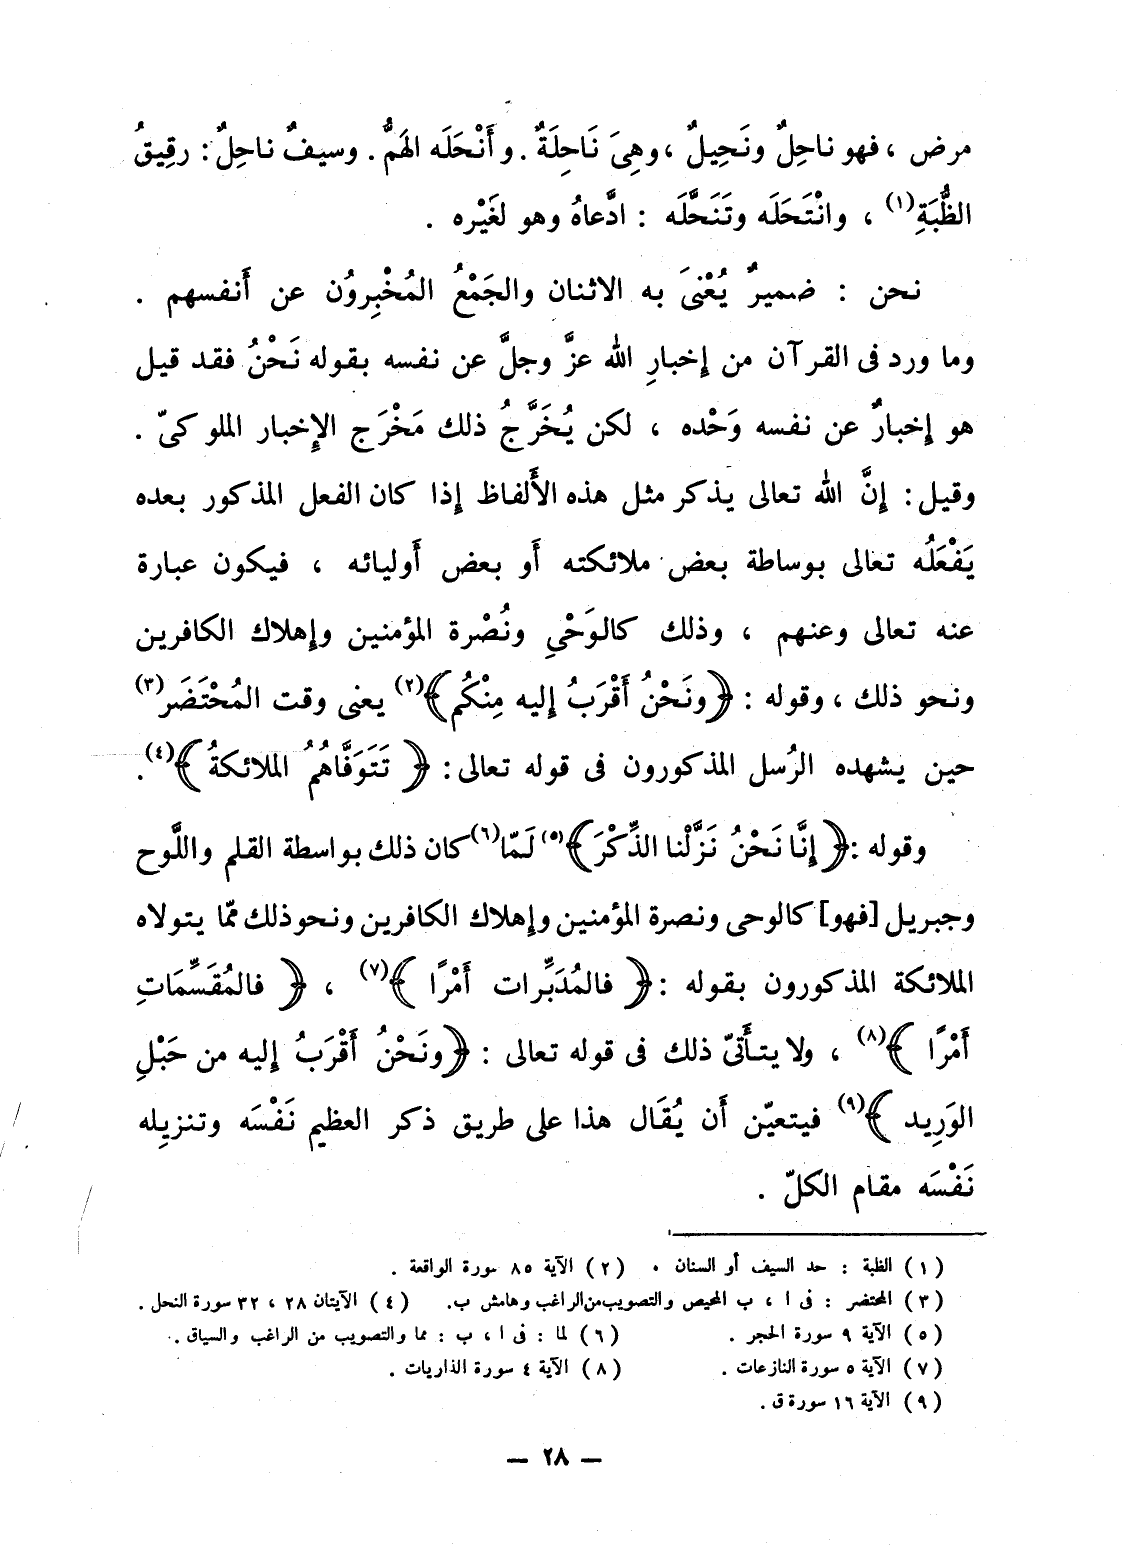 مرض ، فهو ناحِلٌ ونَحِيلٌ ، وهِىَ نَاحِلَةٌ . و أَنْحَلَه الهَمُّ . وسيفٌ ناحِلٌ : رقِيقُ
الظُّبَةِ(١) ، وانْتَحَلَه وتَنَحَّلَه : ادَّعاهُ وهو لغَيْره .
نحن : ضميرٌ يُعْنىَ به الاثنان والجَمْعُ المُخْبِروُن عن أَنفسهم .
وما ورد فى القرآن من إخبارِ الله عزَّ وجلَّ عن نفسه بقوله نَحْنُ فقد قيل
هو إخبارٌ عن نفسه وَحْده ، لكن يُخَرَّجُ ذلك مَخْرَج الإِخبار الملوكىّ .
وقيل : إنَّ الله تعالى يذكر مثل هذه الأَلفاظ إذا كان الفعل المذكور بعده
يَفْعَلُه تعالى بوساطة بعض ملائكته أَو بعض أَوليائه ، فيكون عبارة
عنه تعالى وعنهم ، وذلك كالوَحْىِ ونُصْرة المؤمنين وإهلاك الكافرين
ونحو ذلك ، وقوله : ﴿ونَحْنُ أَقْرَبُ إليه مِنْكُم﴾(٢) يعنى وقت المُحْتَضَر(٣)
حين يشهده الرُسل المذكورون فى قوله تعالى : ﴿ تَتَوَفَّاهُمُ الملائكةُ ﴾(٤).
وقوله : ﴿ إِنَّا نَحْنُ نَزَّلْنا الذِّكْرَ ﴾(٥) لَمّا(٦) كان ذلك بواسطة القلم واللَّوح
وجبريل [فهو] كالوحى ونصرة المؤمنين وإهلاك الكافرين ونحو ذلك ممّا يتولاه
الملائكة المذكورون بقوله : ﴿ فالمُدَبِّرات أَمْرًا ﴾(٧) ، ﴿ فالمُقَسِّمَاتِ
أَمْرًا ﴾(٨) ، ولا يتأَتىّ ذلك فى قوله تعالى : ﴿ونَحْنُ أَقْرَبُ إليه من حَبْلِ
الوَرِيد ﴾(٩) فيتعيّن أَن يُقَال هذا على طريق ذكر العظيم نَفْسَه وتنزيلِه
نَفْسَه مقام الكلّ .
(١) الظبة : حد السيف أو السنان . (٢) الآية ٨٥ سورة الواقعة .
(٣) المحتضر : فى ا ، ب المحيص والتصويب من الراغب وهامش ب. (٤) الآيتان ٢٨ ، ٣٢ سورة النحل .
(٥) الآية ٩ سورة الحجر . (٦) لما : فى ا ، ب : مما والتصويب من الراغب والسياق .
(٧) الآية ٥ سورة النازعات . (٨) الآية ٤ سورة الذاريات .
(٩) الآية ١٦ سورة ق .
— ٢٨ —